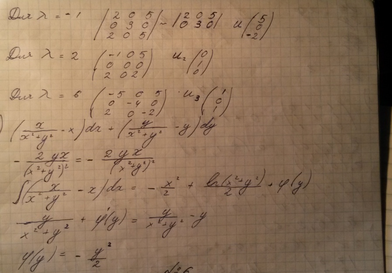 Для λ = -1 |2 0 5; 0 3 0; 2 0 5| - |2 0 5; 0 3 0| u (5; 0; -2)
Для λ = 2 (-1 0 5; 0 0 0; 2 0 2) u₂ (0; 1; 0)
Для λ = 6 (-5 0 5; 0 -4 0; 2 0 -2) u₃ (1; 0; 1)
) (x/(x²+y²) - x)dx + (y/(x²+y²) - y)dy
- 2yx/(x²+y²)² = - 2yx/(x²+y²)²
∫(x/(x²+y²) - x)dx = - x²/2 + ln(x²+y²)/2 + φ(y)
y/(x²+y²) + φ'(y) = y/(x²+y²) - y
φ(y) = - y²/2